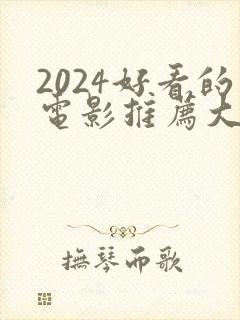 2024好看的
電影推薦大
撫琴而歌